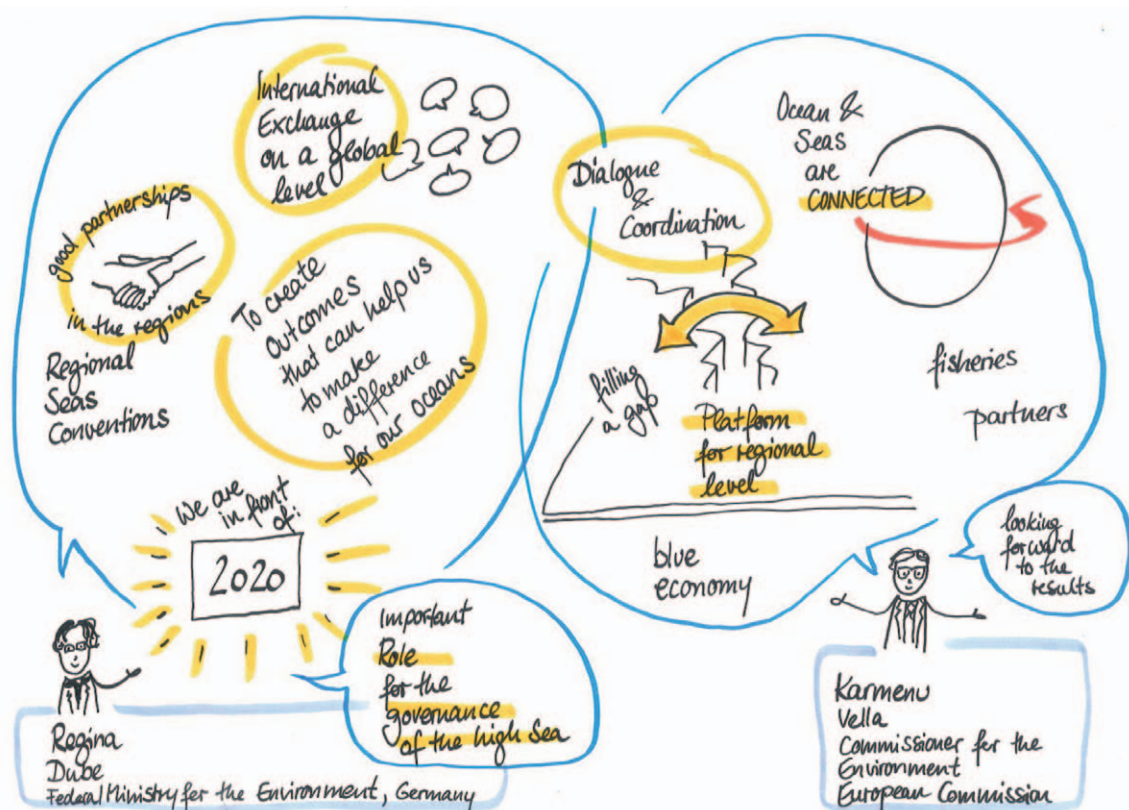 International
Exchange
on a global
level
good partnerships
in the regions
Regional
Seas
Conventions
To create
outcomes
that can help us
to make
a difference
for our oceans
We are
in front
of:
2020
Important
Role
for the
governance
of the high Sea
Regina
Dube
Federal Ministry for the Environment, Germany
Dialogue
&
Coordination
Ocean &
Seas
are
CONNECTED
filling
a gap
Platform
for regional
level
fisheries
partners
blue
economy
looking
forward
to the
results
Karmenu
Vella
Commissioner for the
Environment
European Commission